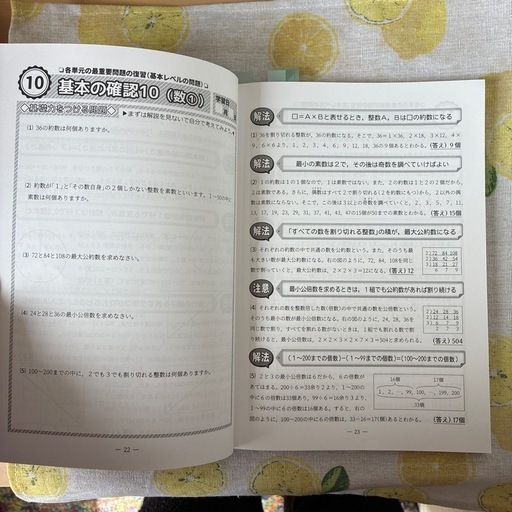 各単元の最重要問題の復習(基本レベルの問題)
10 基本の確認10(数①)
学習日
月 日
◇基礎力をつける問題◇
▶まずは解説を見ないで自分で考えてみよう。
(1) 36の約数は何個ありますか。
(2) 約数が「1」と「その数自身」の2個しかない整数を素数といいます。1〜50の中に
素数は何個ありますか。
(3) 72と84と108の最大公約数を求めなさい。
(4) 24と28と36の最小公倍数を求めなさい。
(5) 100〜200までの中に、2でも3でも割り切れる整数は何個ありますか。
― 22 ―
解法 □=A×Bと表せるとき、整数A、Bは□の約数になる
(1) 36を割り切れる整数が、36の約数になる。そこで、36=1×36、2×18、3×12、4×
9、6×6より、1、2、3、4、6、9、12、18、36の9個あるとわかる。(答え) 9個
解法 最小の素数は2で、その後は奇数を調べていけばよい
(2) 1の約数は1の1個なので、1は素数ではない。また、2の約数は1と2の2個だから、
2は素数である。さらに、偶数はすべて2で割り切れる(2を約数にもつ)から、2以外の偶
数は素数にならない。そこで、この後は3以上の奇数を調べていくと、2、3、5、7、11、
13、17、19、23、29、31、37、41、43、47の15個が50までの素数とわかる。(答え) 15個
解法 「すべての数を割り切れる整数」の積が、最大公約数になる
(3) それぞれの約数の中で共通の数を公約数という。また、そのうち最
も大きい数が最大公約数になる。右の図のように、72、84、108を同じ
数で割っていくと、最大公約数は、2×2×3=12になる。(答え) 12
2)72 84 108
2)36 42 54
3)18 21 27
6 7 9
注意 最小公倍数を求めるときは、1組でも公約数があれば割り続ける
(4) それぞれの数を整数倍した数(倍数)の中で共通の数を公倍数という。
そのうち最小の数が最小公倍数になる。右の図のように、24、28、36を
同じ数で割り、すべてを割れる数がないときは、1組でも割れる数で割
り続けると、最小公倍数は、2×2×3×2×7×3=504と求められる。
(答え) 504
2)24 28 36
2)12 14 18
3) 6 7 9
2 7 3
解法 (1〜200までの個数)−(1〜99までの個数)=(100〜200までの個数)
(5) 2と3の最小公倍数は6だから、6の倍数が
あてはまる。200÷6=33余り2より、1〜200の
中に6の倍数は33個あり、99÷6=16余り3より、
1〜99の中に6の倍数は16個ある。すると、右の
図のように、100〜200の中に6の倍数は、33−16=17(個)あるとわかる。
(答え) 17個
16個 17個
1、2、…、99、100、…、199、200
33個
― 23 ―